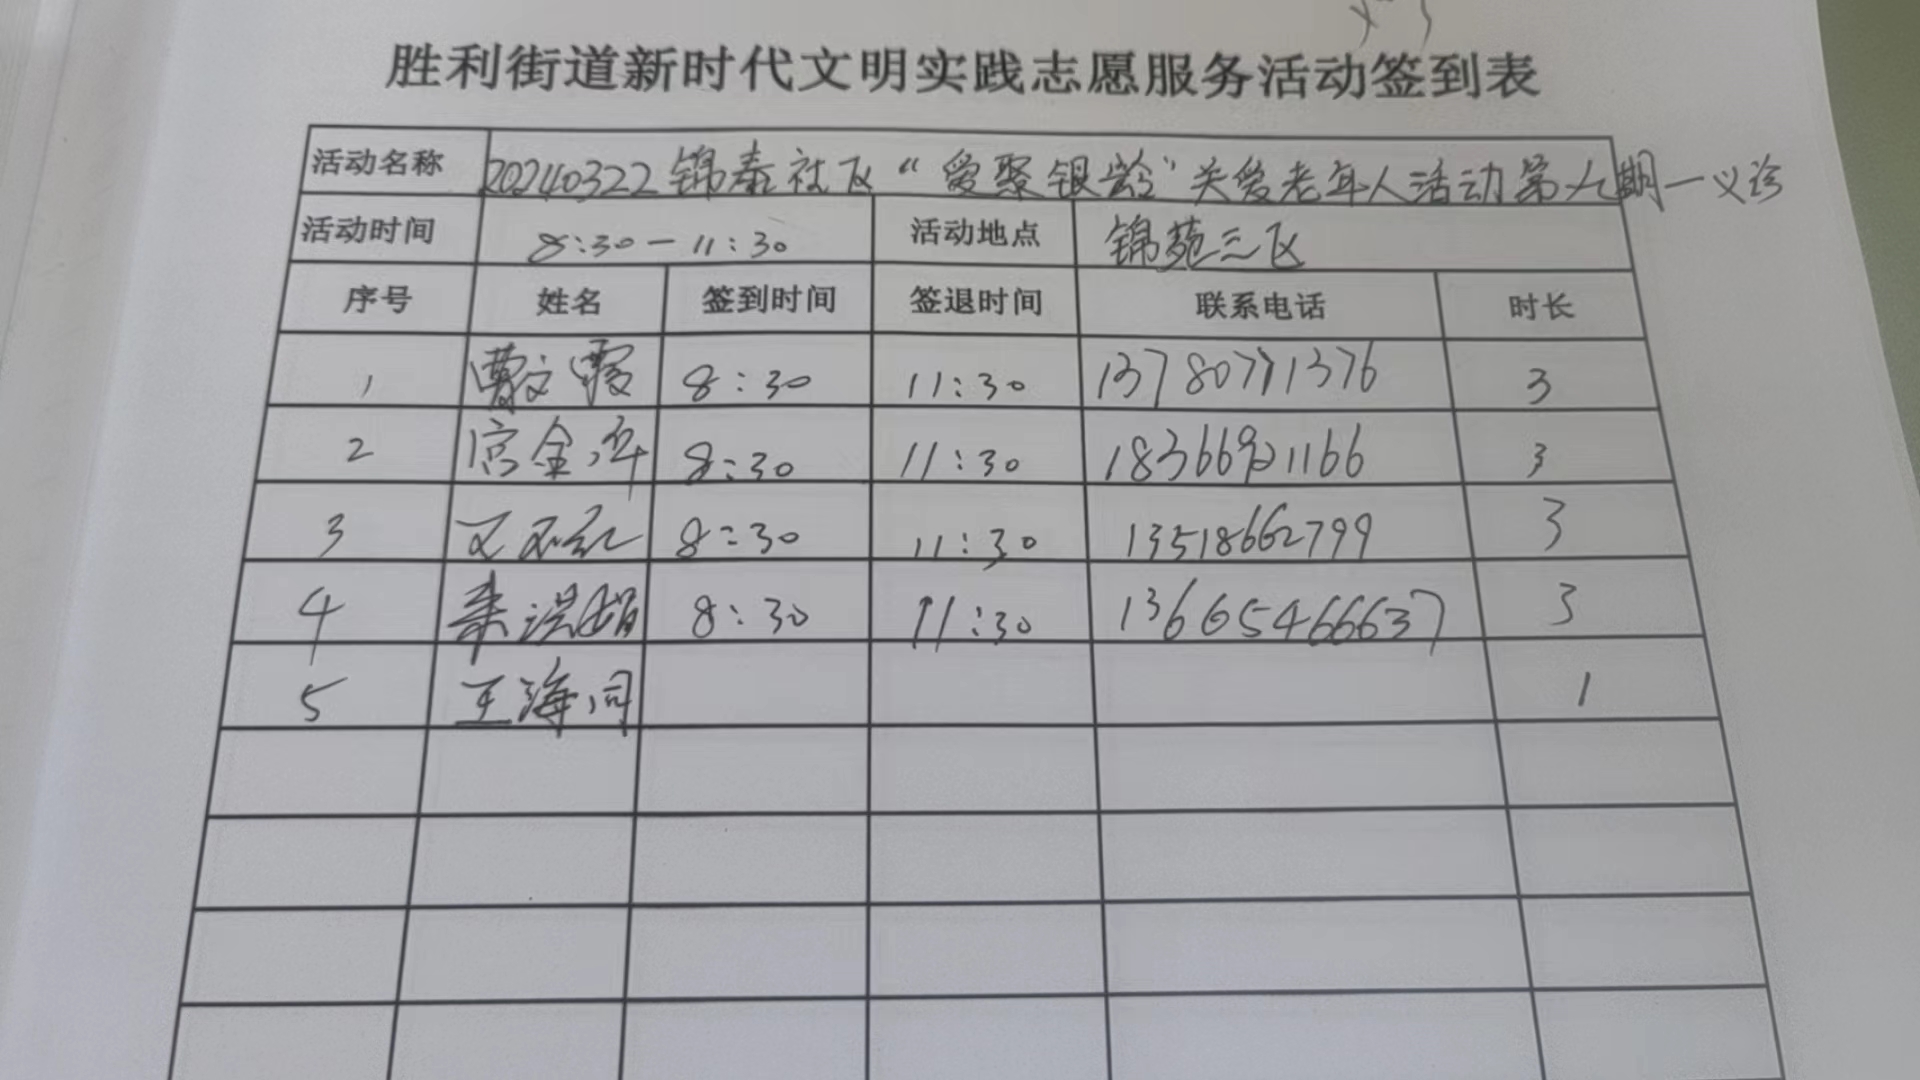 胜利街道新时代文明实践志愿服务活动签到表
活动名称 20240322锦泰社区“爱聚银龄”关爱老年人活动第九期—义诊
活动时间 8:30—11:30 活动地点 锦苑三区
序号 姓名 签到时间 签退时间 联系电话 时长
1 曹文霞 8:30 11:30 13780771376 3
2 宫金萍 8:30 11:30 18366921166 3
3 8:30 11:30 13518662799 3
4 8:30 11:30 13665466637 3
5 王海 1